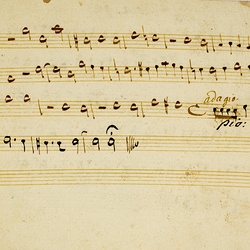 adagio
pio: